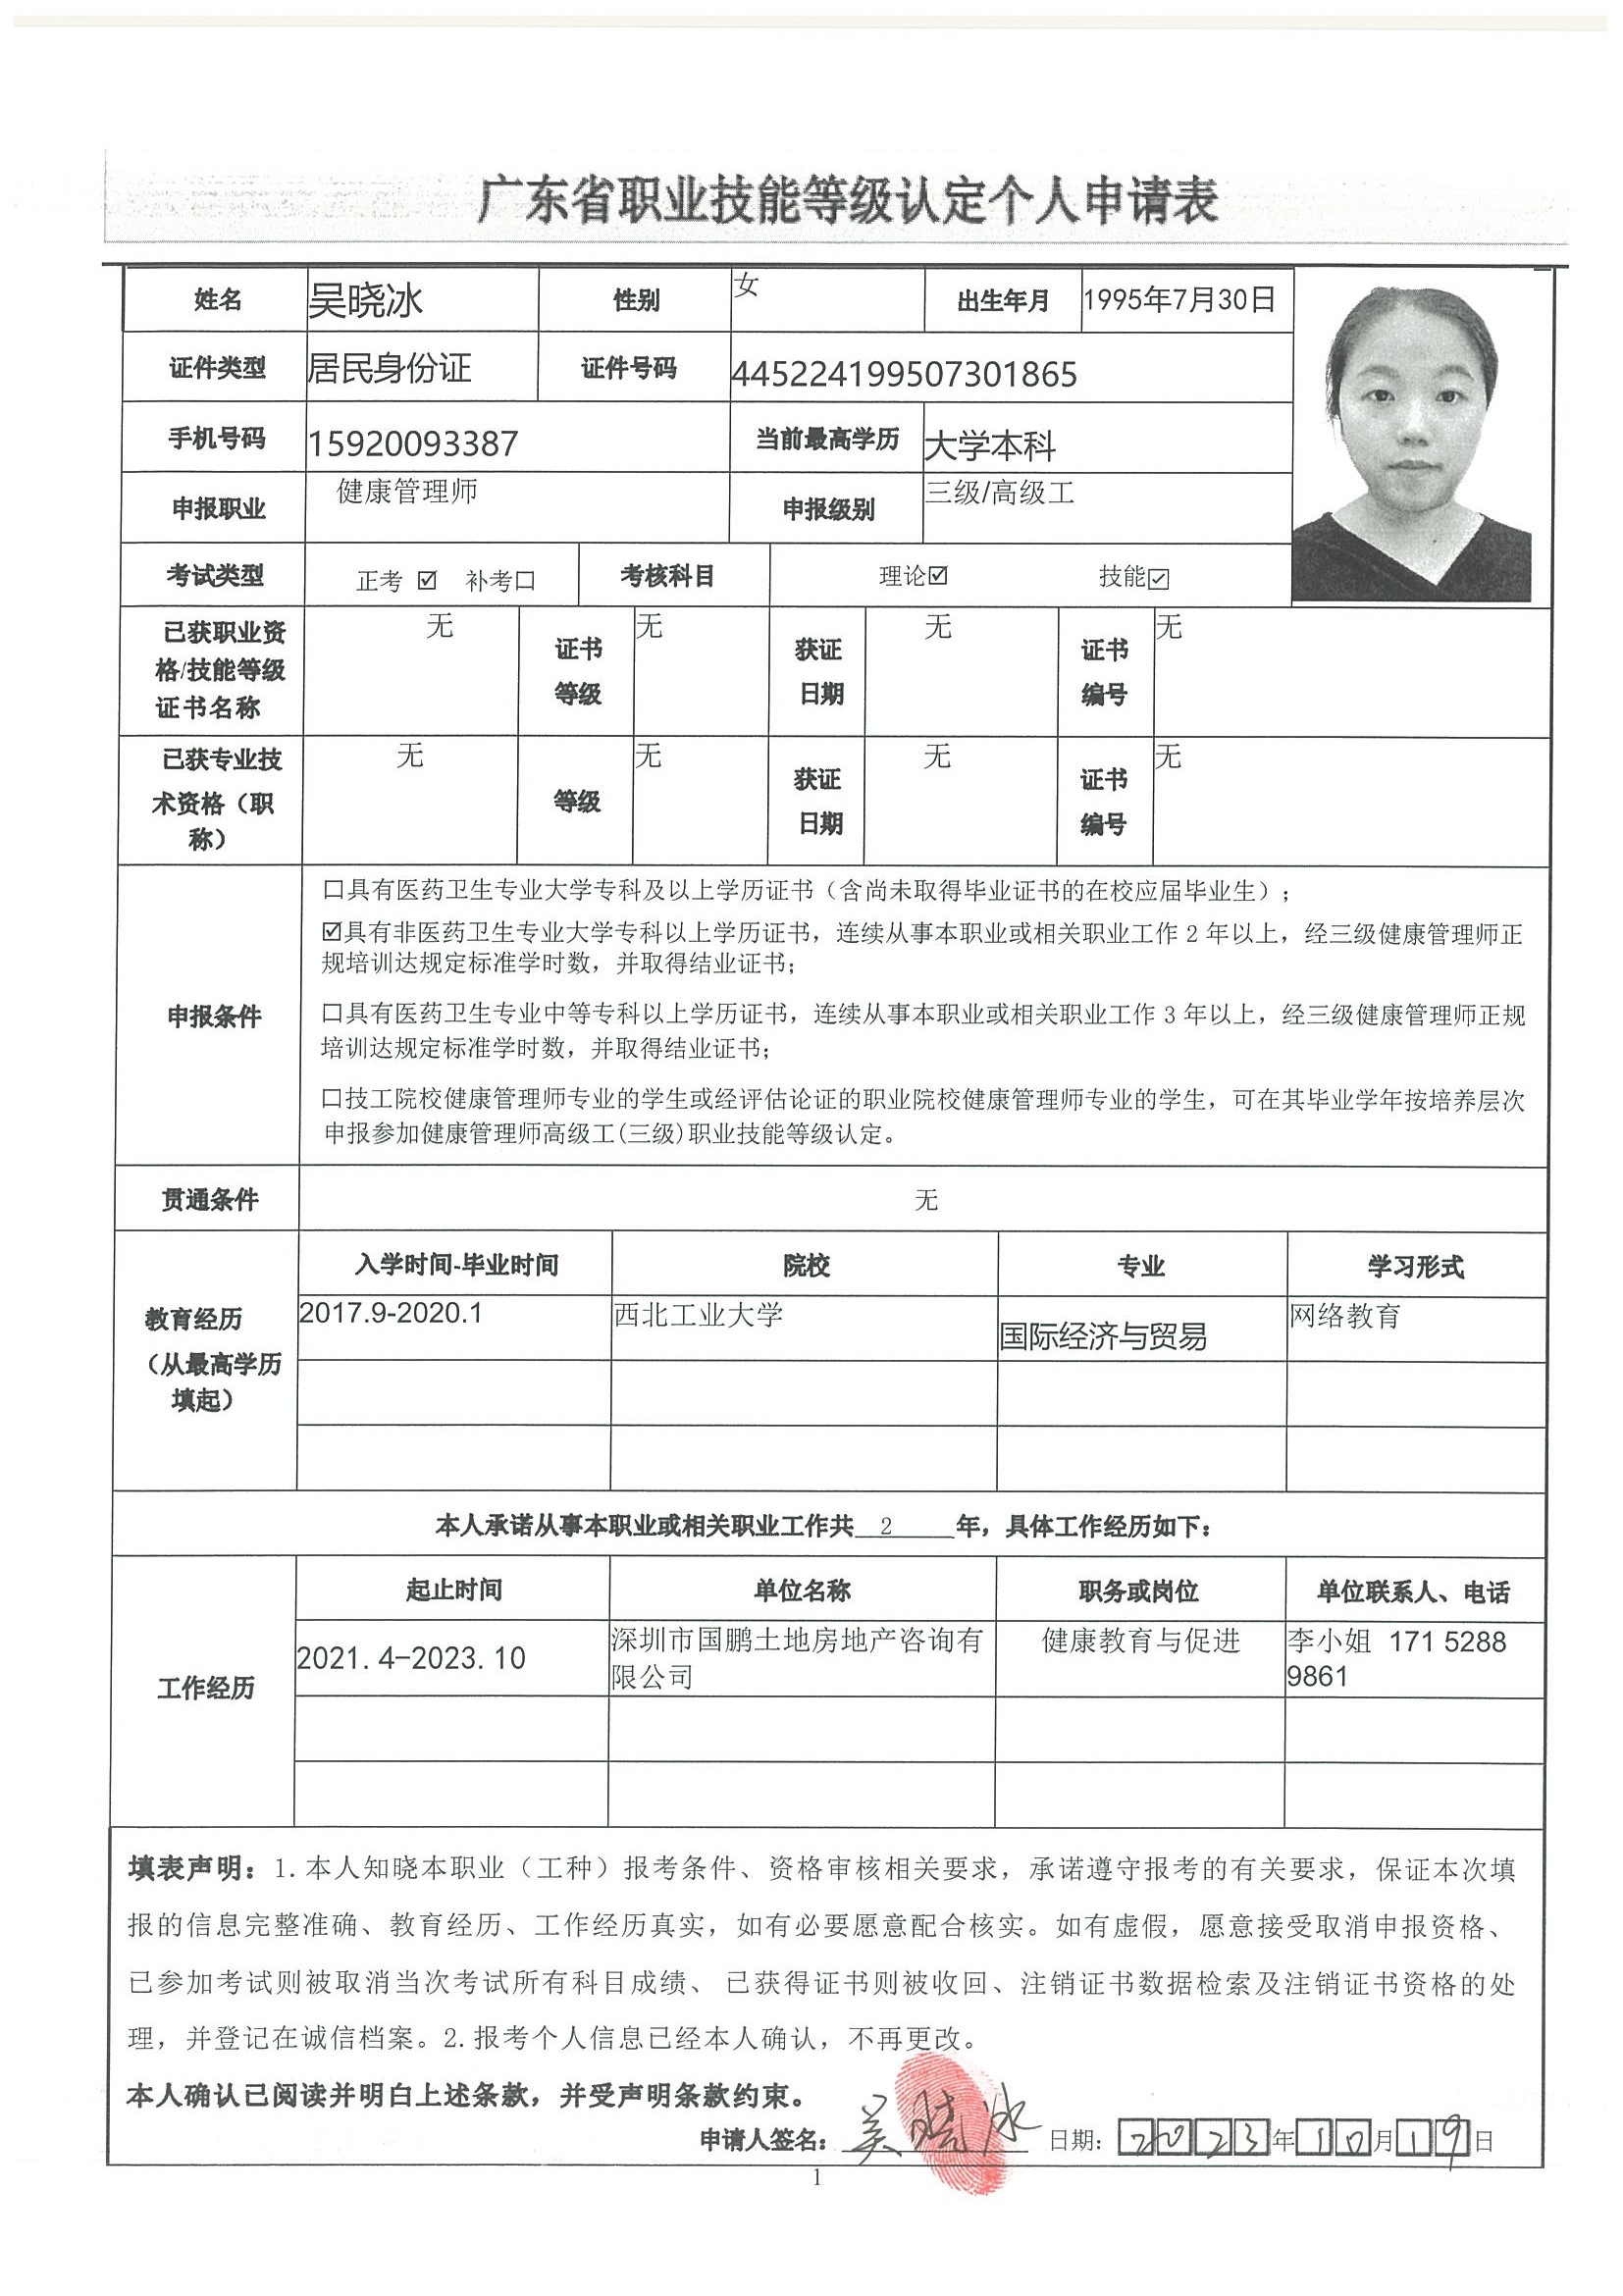 广东省职业技能等级认定个人申请表
姓名 吴晓冰 性别 女 出生年月 1995年7月30日
证件类型 居民身份证 证件号码 445224199507301865
手机号码 15920093387 当前最高学历 大学本科
申报职业 健康管理师 申报级别 三级/高级工
考试类型 正考 ☑ 补考口 考核科目 理论☑ 技能☑
已获职业资格/技能等级证书名称 无 证书等级 无 获证日期 无 证书编号 无
已获专业技术资格（职称） 无 等级 无 获证日期 无 证书编号 无
申报条件
口具有医药卫生专业大学专科及以上学历证书（含尚未取得毕业证书的在校应届毕业生）；
☑具有非医药卫生专业大学专科以上学历证书，连续从事本职业或相关职业工作 2 年以上，经三级健康管理师正
规培训达规定标准学时数，并取得结业证书；
口具有医药卫生专业中等专科以上学历证书，连续从事本职业或相关职业工作 3 年以上，经三级健康管理师正规
培训达规定标准学时数，并取得结业证书；
口技工院校健康管理师专业的学生或经评估论证的职业院校健康管理师专业的学生，可在其毕业学年按培养层次
申报参加健康管理师高级工(三级)职业技能等级认定。
贯通条件 无
教育经历
（从最高学历
填起）
入学时间-毕业时间 院校 专业 学习形式
2017.9-2020.1 西北工业大学 国际经济与贸易 网络教育
本人承诺从事本职业或相关职业工作共 2 年，具体工作经历如下：
工作经历
起止时间 单位名称 职务或岗位 单位联系人、电话
2021.4-2023.10 深圳市国鹏土地房地产咨询有限公司 健康教育与促进 李小姐 171 5288 9861
填表声明：1.本人知晓本职业（工种）报考条件、资格审核相关要求，承诺遵守报考的有关要求，保证本次填
报的信息完整准确、教育经历、工作经历真实，如有必要愿意配合核实。如有虚假，愿意接受取消申报资格、
已参加考试则被取消当次考试所有科目成绩、 已获得证书则被收回、注销证书数据检索及注销证书资格的处
理，并登记在诚信档案。2.报考个人信息已经本人确认，不再更改。
本人确认已阅读并明白上述条款，并受声明条款约束。
申请人签名：吴晓冰 日期：2023年10月19日
1